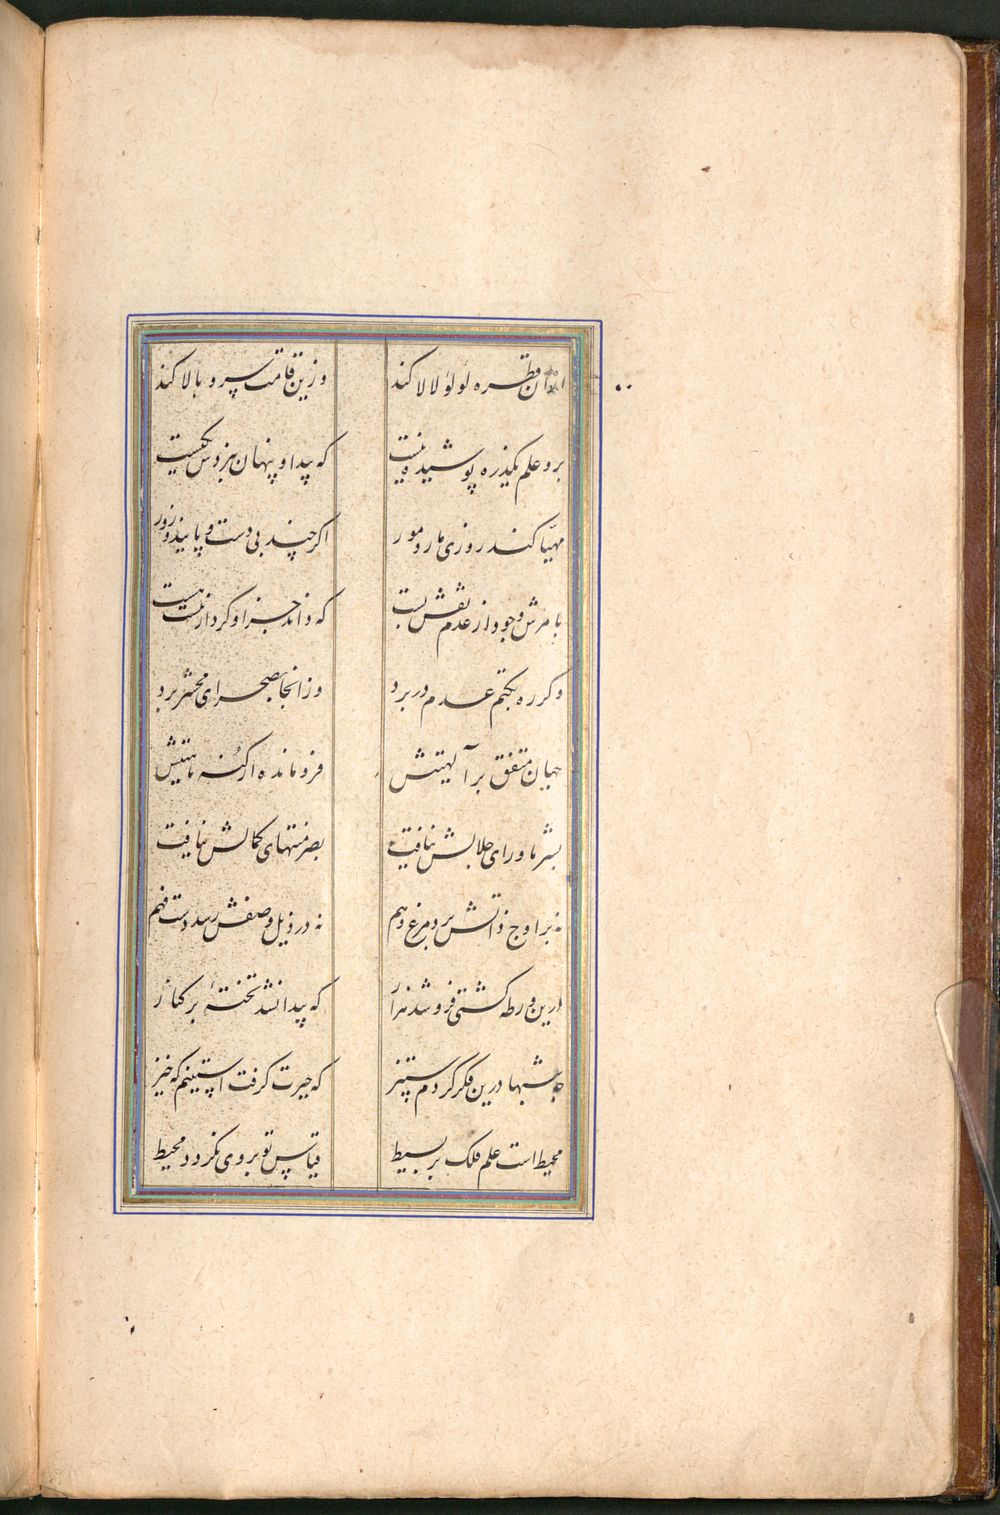 ازان قطره لولوٴ لالا کند وزین قامت سرو بالا کند
برو علم یکذره پوشیده نیست که پیدا و پنهان بنزدش یکیست
مهیا کند روزی مار و مور اکر چند بی دست و پایند و زور
بامرش وجود از عدم نقش بست که داند جز او کردن از نیست هست
دکر ره بکتم عدم در برد وز انجا بصحرای محشر برد
جهان متفق بر آلهیتش فرو مانده از کنه ماهیتش
بشر ماورای جلالش نیافت بصر منتهای کمالش نیافت
نه بر اوج ذاتش پرد مرغ وهم نه در ذیل وصفش رسد دست فهم
درین ورطه کشتی فرو شد هزار که پیدا نشد تختهٔ بر کنار
چه شبها درین فکر کردم ستیز که حیرت کرفت آستینم که خیز
محیط است علم ملک بر بسیط قیاس تو بروی نکردد محیط